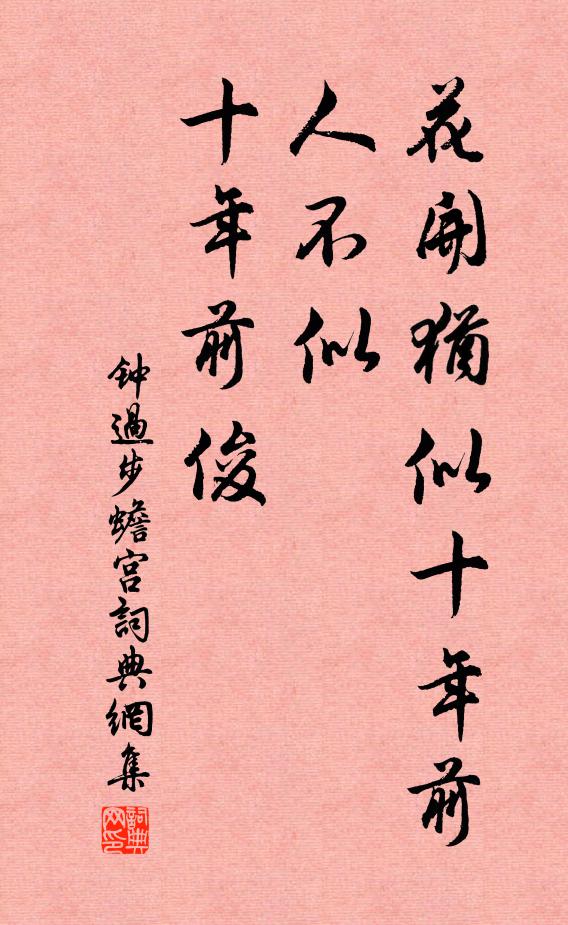 花開猶似十年前
人不似
十年前俊
钟過步蟾宫詞典網集
詞典网印